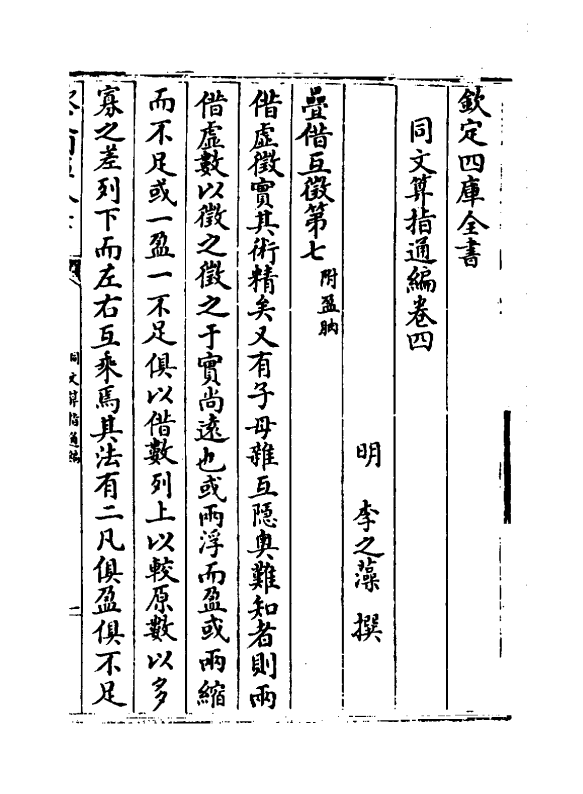 欽定四庫全書
同文算指通編卷四
明 李之藻 撰
疊借互徵第七 附盈朒
借虛徵實其術精矣又有子母雜互隱奧難知者則兩
借虛數以徵之徵之于實尚遠也或兩浮而盈或兩縮
而不足或一盈一不足俱以借數列上以較原數以多
寡之差列下而左右互乘焉其法有二凡俱盈俱不足
同文算指通編
一